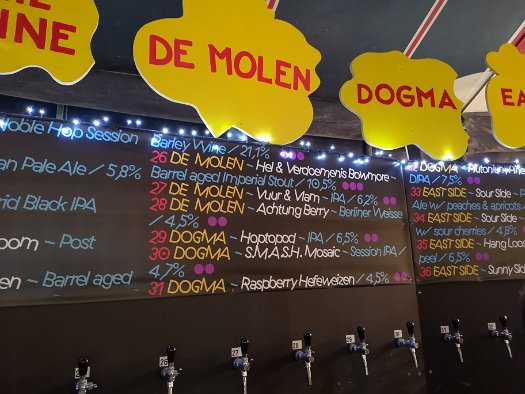 NNE
DE MOLEN
DOGMA
EA
Noble Hop Session
an Pale Ale / 5,8%
rid Black IPA
oom - Post
en - Barrel aged
Barley Wine / 21,1%
26 DE MOLEN - Hel & Verdoemenis Bowmore
Barrel aged Imperial Stout / 10,5%
27 DE MOLEN - Vuur & Vlam - IPA / 6,2%
28 DE MOLEN - Achtung Berry - Berliner Weisse
/ 4,5%
29 DOGMA - Hoptopod - IPA / 6,5%
30 DOGMA - S.M.A.S.H. Mosaic - Session IPA /
4,7%
31 DOGMA - Raspberry Hefeweizen / 4,5%
DOGMA
DIPA / 7,5%
33 EAST SIDE - Sour Side
Ale w/ peaches & apricots
34 EAST SIDE - Sour Side
w/ sour cherries / 4,8%
35 EAST SIDE - Hang Loos
peel / 6,5%
36 EAST SIDE - Sunny Sid
27
28